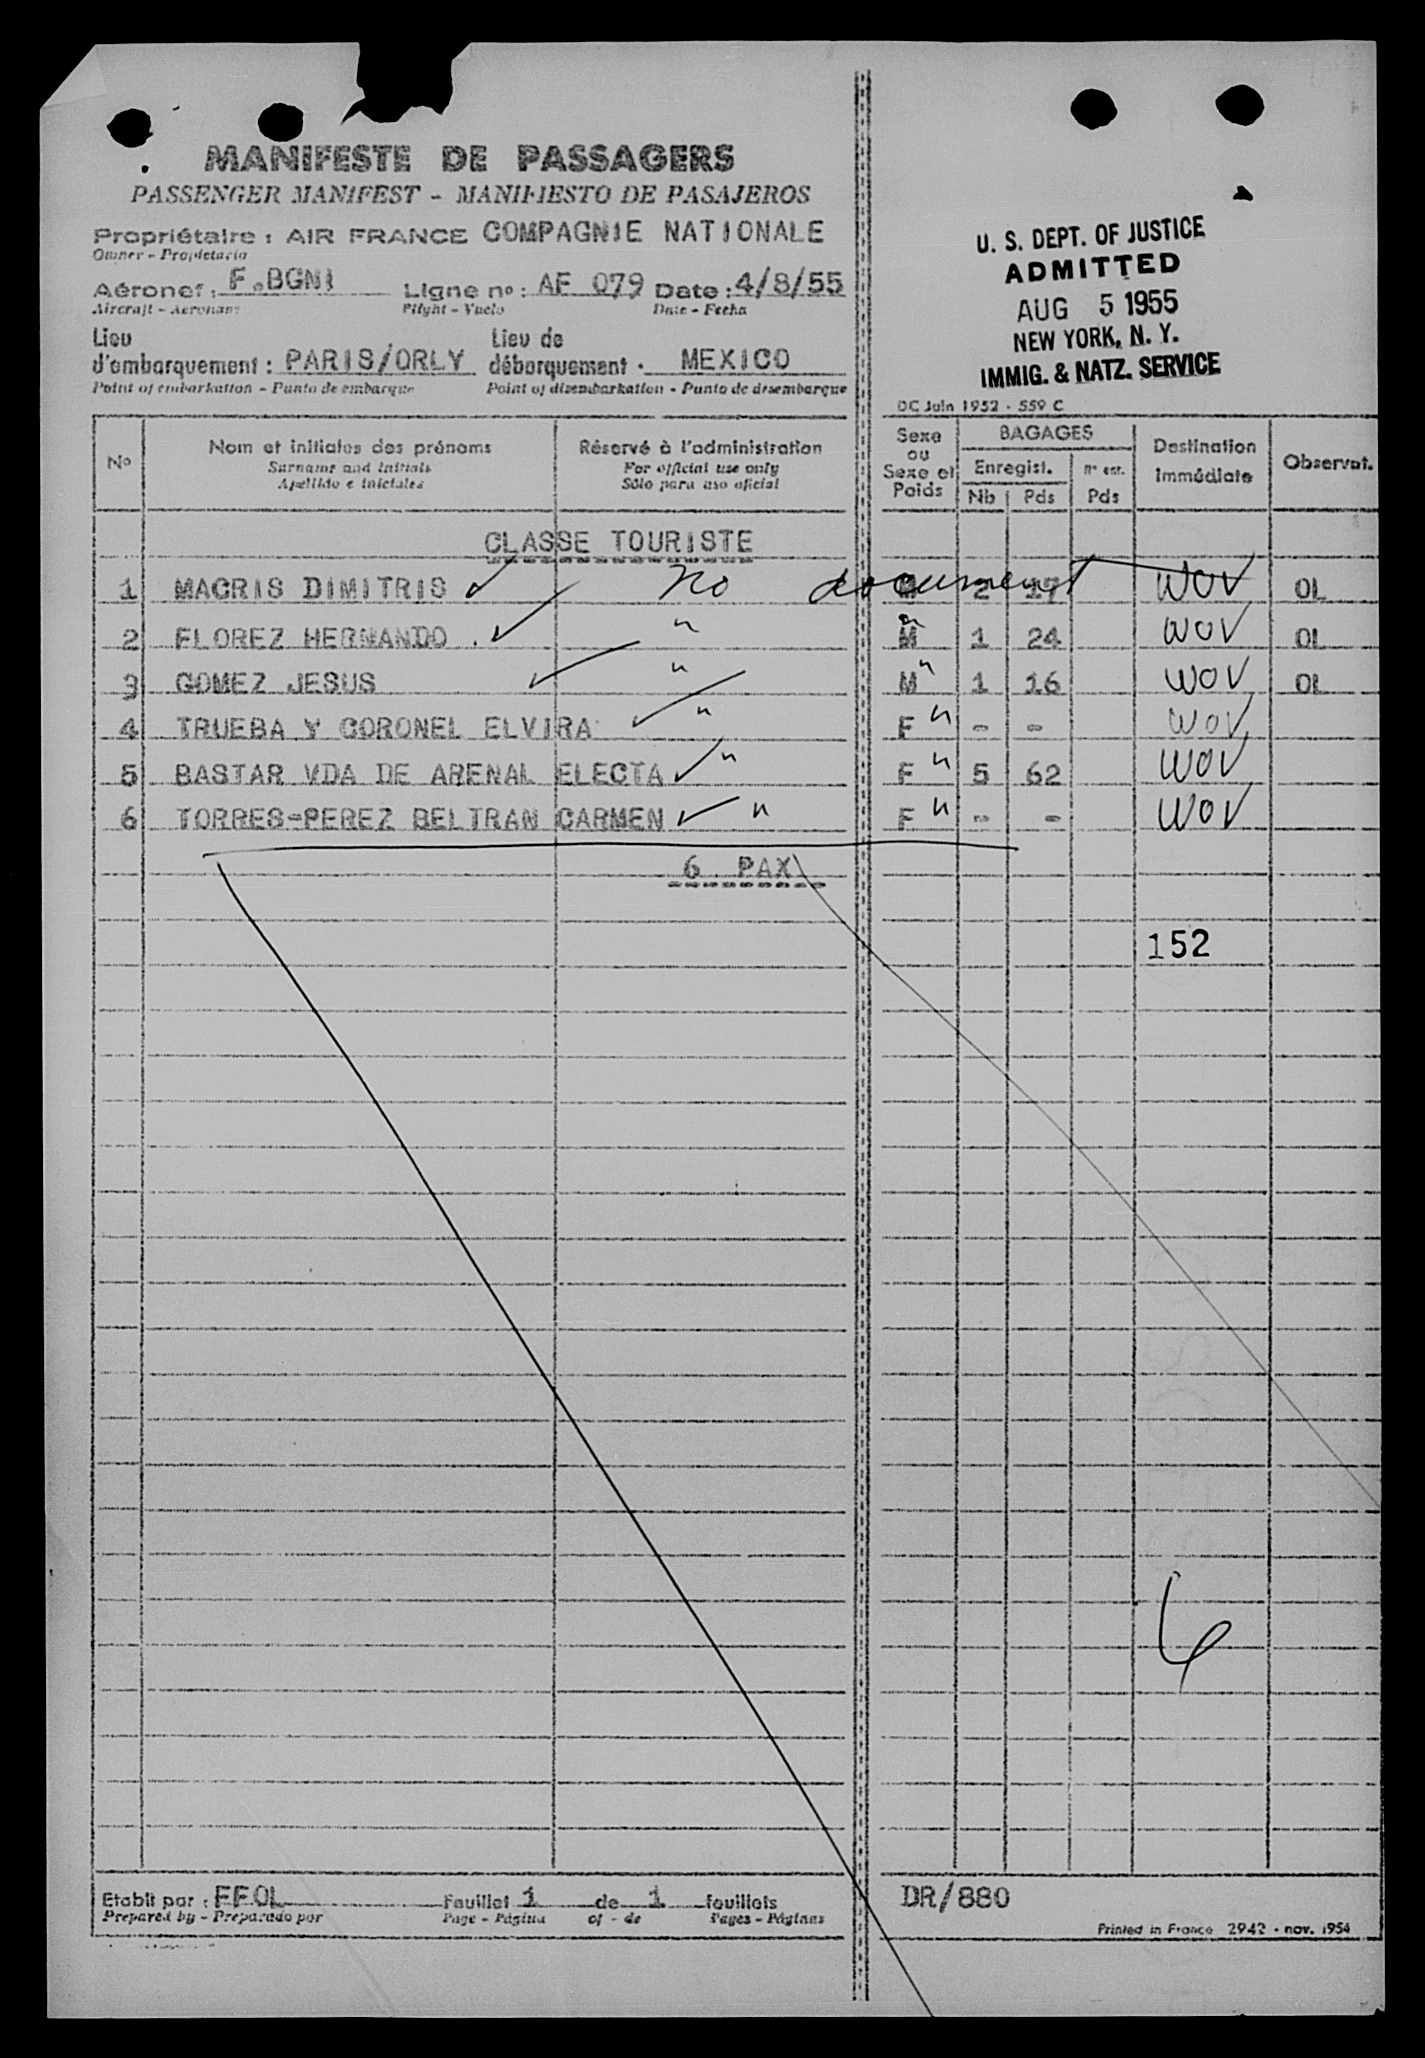 MANIFESTE DE PASSAGERS
PASSENGER MANIFEST - MANIFIESTO DE PASAJEROS
Propriétaire : AIR FRANCE COMPAGNIE NATIONALE
Owner - Propietario
Aéronef : F.BGNI Ligne nº : AF 079 Date : 4/8/55
Aircraft - Aeronave Flight - Vuelo Date - Fecha
Lieu d'embarquement : PARIS/ORLY Lieu de débarquement : MEXICO
Point of embarkation - Punto de embarque Point of disembarkation - Punto de desembarque
U. S. DEPT. OF JUSTICE
ADMITTED
AUG 5 1955
NEW YORK, N. Y.
IMMIG. & NATZ. SERVICE
DC Juin 1952 - 559 C
Nº Nom et initiales des prénoms Réservé à l'administration Sexe ou Sexe et Poids BAGAGES Destination immédiate Observat.
Surname and initials For official use only Enregist. nº enr.
Apellido e iniciales Sólo para uso oficial Nb Pds Pds
CLASSE TOURISTE
1 MACRIS DIMITRIS ✓ no document M 2 17 WOV OL
2 FLOREZ HERNANDO . ✓ " M " 1 24 WOV OL
3 GOMEZ JESUS ✓ " M " 1 16 WOV OL
4 TRUEBA Y CORONEL ELVIRA ✓ " F " - - WOV
5 BASTAR VDA DE ARENAL ELECTA ✓ " F " 5 62 WOV
6 TORRES-PEREZ BELTRAN CARMEN ✓ " F " - - WOV
6 PAX
152
6
Etabli par : FFOL Feuillet 1 de 1 feuillets DR/880
Prepared by - Preparado por Page - Página of - de Pages - Páginas
Printed in France 2942 - nov. 1954